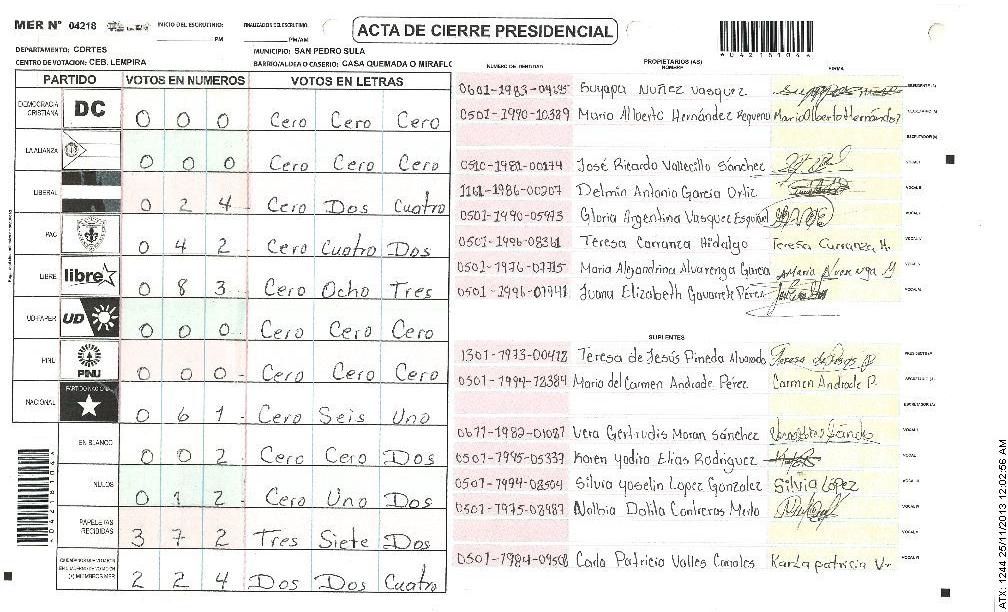 MER Nº 04218 INICIO DEL ESCRUTINIO: PM FINALIZACION DEL ESCRUTINIO: PM/AM
ACTA DE CIERRE PRESIDENCIAL
DEPARTAMENTO: CORTES MUNICIPIO: SAN PEDRO SULA
CENTRO DE VOTACION: CEB. LEMPIRA BARRIO/ALDEA O CASERIO: CASA QUEMADA O MIRAFLO
PARTIDO VOTOS EN NUMEROS VOTOS EN LETRAS
DEMOCRACIA CRISTIANA DC 0 0 0 Cero Cero Cero
LA ALIANZA 0 0 0 Cero Cero Cero
LIBERAL 0 2 4 Cero Dos Cuatro
PAC 0 4 2 Cero Cuatro Dos
LIBRE libre 0 8 3 Cero Ocho Tres
UD-FAPER UD 0 0 0 Cero Cero Cero
PINU PINU 0 0 0 Cero Cero Cero
NACIONAL PARTIDO NACIONAL 0 6 1 Cero Seis Uno
EN BLANCO 0 0 2 Cero Cero Dos
NULOS 0 1 2 Cero Uno Dos
PAPELETAS RECIBIDAS 3 7 2 Tres Siete Dos
(+) MIEMBROS MER 2 2 4 Dos Dos Cuatro
NUMERO DE IDENTIDAD PROPIETARIOS (AS) NOMBRE FIRMA
Suyapa Nuñez Vasquez
0501-1990-10389 Mario Alberto Hernández Mario Alberto Hernández
0510-1981-00174 José Ricardo Vallecillo Sánchez
1101-1986-00207 Delmin Antonio García Ortiz
0501-1990-05993 Gloria Argentina Vasquez
0501-1996-08361 Teresa Carranza Hidalgo Teresa Carranza H.
0501-1976-07715 Maria Alejandrina Alvarenga Garcia
0501-1996-07941 Juana Elizabeth Gavarrete Pérez
SUPLENTES
1301-1973-00478 Teresa de Jesús Pineda Alvarado
0501-1994-12384 Maria del Carmen Andrade Pérez Carmen Andrade P.
0611-1982-01087 Vera Gertrudis Moran Sánchez
0501-1995-05337 Karen Yadira Elias Rodriguez
0501-1994-08504 Silvia Yoselin Lopez Gonzalez Silvia López
0501-1975-08987 Dalila Contreras
0501-1984-09508 Carla Patricia Valles Canales Karla patricia V.
A0421810A4
ATX: 1244 25/11/2013 12:02:56 AM